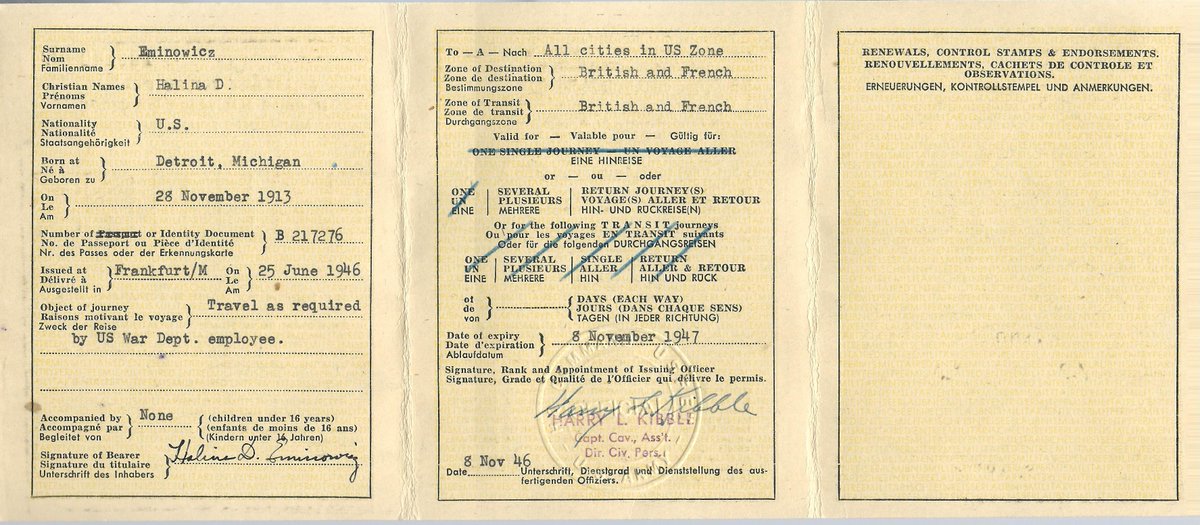 Surname
Nom
Familienname
Eminowicz
Christian Names
Prénoms
Vornamen
Halina D.
Nationality
Nationalité
Staatsangehörigkeit
U.S.
Born at
Né à
Geboren zu
Detroit, Michigan
On
Le
Am
28 November 1913
Number of Passport or Identity Document
No. de Passeport ou Pièce d'Identité
Nr. des Passes oder der Erkennungskarte
B 217276
Issued at
Délivré à
Ausgestellt in
Frankfurt/M
On
Le
Am
25 June 1946
Object of journey
Raisons motivant le voyage
Zweck der Reise
Travel as required
by US War Dept. employee.
Accompanied by
Accompagné par
Begleitet von
None
(children under 16 years)
(enfants de moins de 16 ans)
(Kindern unter 16 Jahren)
Signature of Bearer
Signature du titulaire
Unterschrift des Inhabers
Halina D. Eminowicz
To — A — Nach All cities in US Zone
Zone of Destination
Zone de destination
Bestimmungszone
British and French
Zone of Transit
Zone de transit
Durchgangszone
British and French
Valid for — Valable pour — Gültig für:
ONE SINGLE JOURNEY — UN VOYAGE ALLER
EINE HINREISE
or — ou — oder
ONE SEVERAL RETURN JOURNEY(S)
UN PLUSIEURS VOYAGE(S) ALLER ET RETOUR
EINE MEHRERE HIN- UND RÜCKREISE(N)
Or for the following TRANSIT journeys
Ou pour les voyages EN TRANSIT suivants
Oder für die folgenden DURCHGANGSREISEN
ONE SEVERAL SINGLE RETURN
UN PLUSIEURS ALLER ALLER & RETOUR
EINE MEHRERE HIN HIN UND RÜCK
of
de
von
DAYS (EACH WAY)
JOURS (DANS CHAQUE SENS)
TAGEN (IN JEDER RICHTUNG)
Date of expiry
Date d'expiration
Ablaufdatum
8 November 1947
Signature, Rank and Appointment of Issuing Officer
Signature, Grade et Qualité de l'Officier qui délivre le permis.
Harry L Kibble
HARRY L. KIBBLE
Capt. Cav., Ass't.
Dir. Civ. Pers.
Date 8 Nov 46 Unterschrift, Dienstgrad und Dienststellung des aus-
fertigenden Offiziers.
RENEWALS, CONTROL STAMPS & ENDORSEMENTS.
RENOUVELLEMENTS, CACHETS DE CONTROLE ET
OBSERVATIONS.
ERNEUERUNGEN, KONTROLLSTEMPEL UND ANMERKUNGEN.